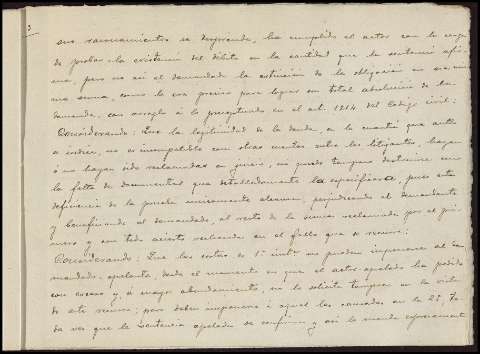 3
sus razonamientos se desprende, ha cumplido el actor con la carga
de probar la existencia del débito en la cantidad que la sentencia afir-
ma, pero no así el demandado la extinción de la obligación en esa mis-
ma suma, como le era preciso para lograr su total absolución de la
demanda, con arreglo á lo preceptuado en el art. 1214 del Código civil:
Considerando: Que la legitimidad de la deuda, en la cuantía que antes
se indica, no es incompatible con otras cuentas entre los litigantes, hayan
ó no hayan sido reclamadas en juicio, ni puede tampoco destruirse con
la falta de documentos que detalladamente la especificara, pues esta
deficiencia de la prueba únicamente alcanza, perjudicando al demandante
y beneficiando al demandado, al resto de la suma reclamada por el pri-
mero y con todo acierto rechazada en el fallo que se recurre:
Considerando: Que las costas de 1ª instª no pueden imponerse al de-
mandado apelante, desde el momento en que el actor apelado ha pedido
con exceso y, á mayor abundamiento, no lo solicita tampoco en la vista
de este recurso; pero deben imponerse á aquel las causadas en la 2ª, To-
da vez que la Sentencia apelada se confirma y así lo manda expresament